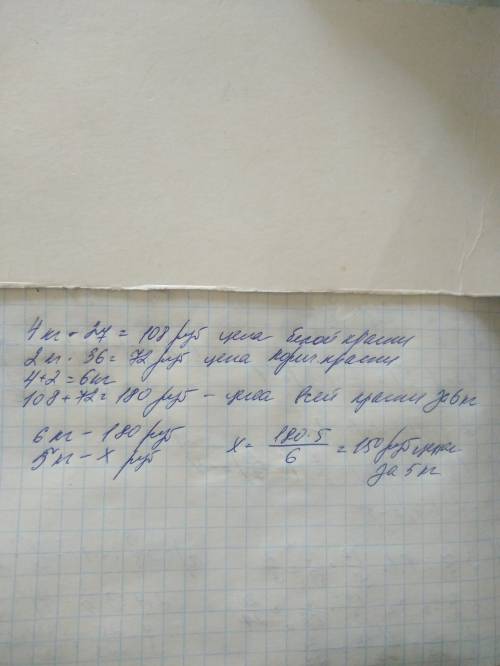 4 кг · 27 = 108 руб цена белой краски
2 кг · 36 = 72 руб цена корич краски
4+2=6кг
108+72=180 руб - цена всей краски за 6 кг
6 кг - 180 руб
5 кг - x руб
x = 180·5 / 6 = 150 руб цена
за 5 кг